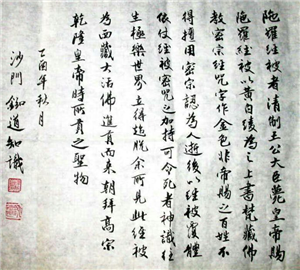 陁羅经被者清制王公大臣薨皇帝賜
陁羅经被以黄白绫為之上書梵藏佛
教密宗经咒字作金色非帝賜之百姓不
得擅用密宗認為人逝後以经被覆體
依仗经被密咒之加持可令死者神識往
生極樂世界立得超脱余所見此经被
為西藏大活佛進貢而来朝拜高宗
乾隆皇帝時所貢之聖物
丁酉年秋月
沙門釧道知識